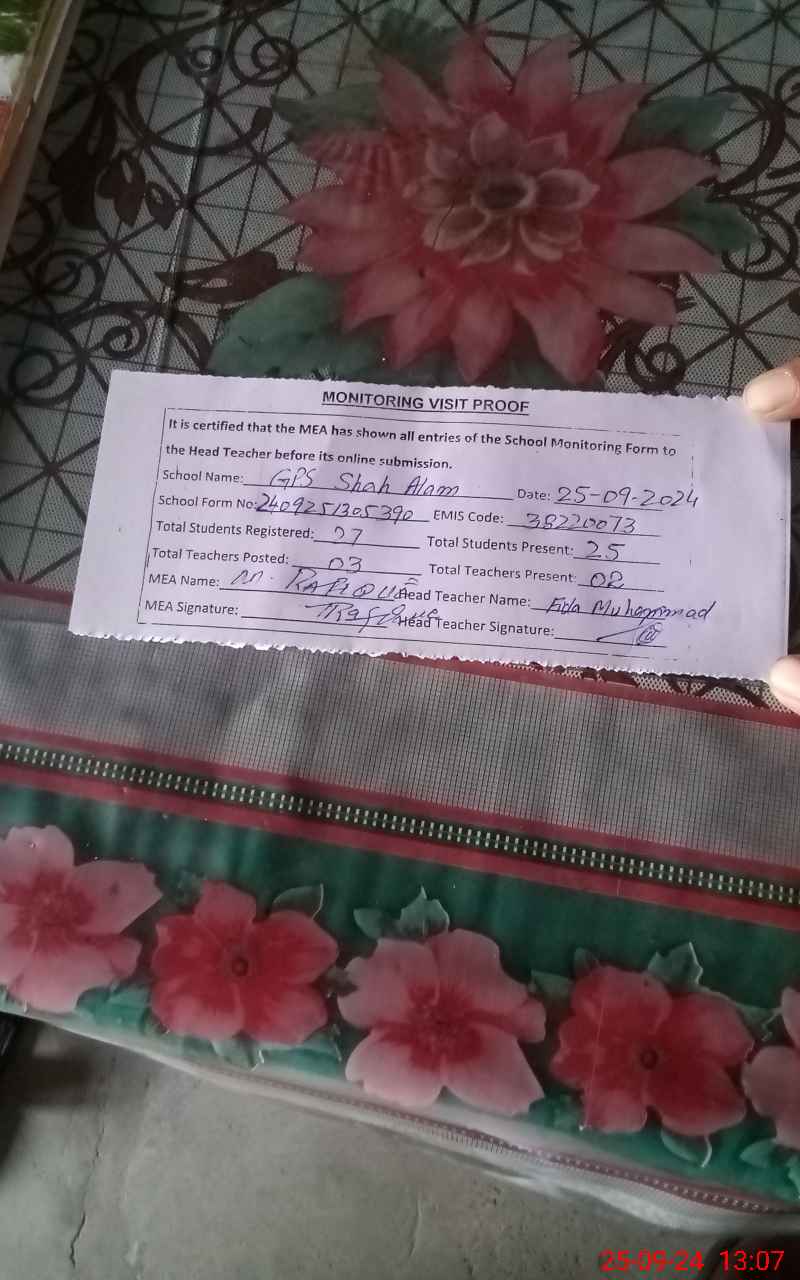 MONITORING VISIT PROOF
It is certified that the MEA has shown all entries of the School Monitoring Form to
the Head Teacher before its online submission.
School Name: GPS Shah Alam Date: 25-09-2024
School Form No: 2409251305390 EMIS Code: 38220073
Total Students Registered: 27 Total Students Present: 25
Total Teachers Posted: 03 Total Teachers Present: 02
MEA Name: M. RAFIQUE Head Teacher Name: Fida Muhammad
MEA Signature: Head Teacher Signature:
25-09-24 13:07